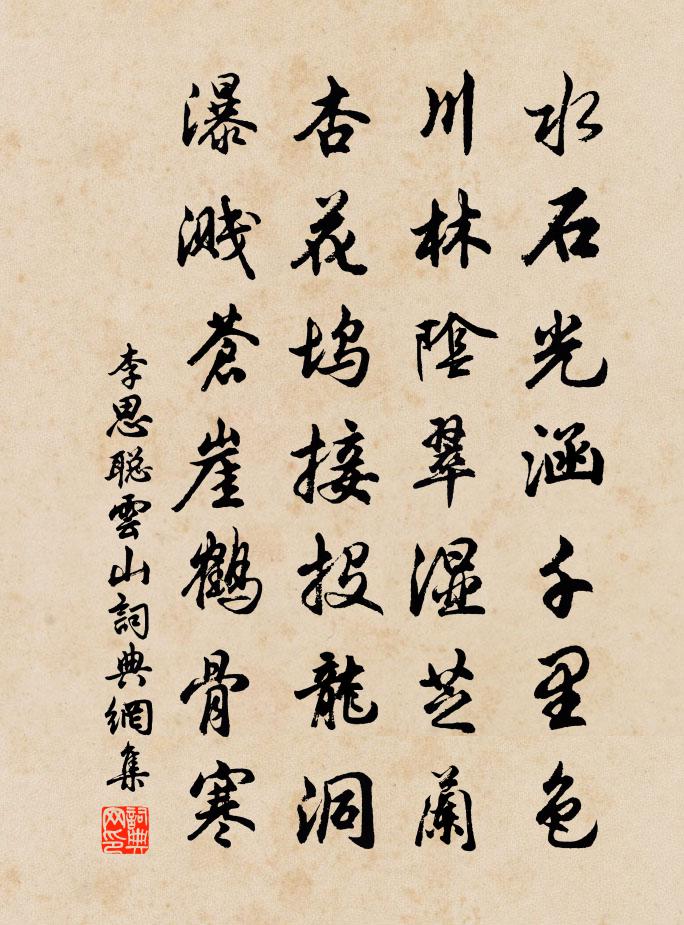 水石光涵千里色
川林陰翠濕芝蘭
杏花塢接投龍洞
瀑濺蒼崖鶴骨寒
李思聡雲山詞典網集
詞典网印